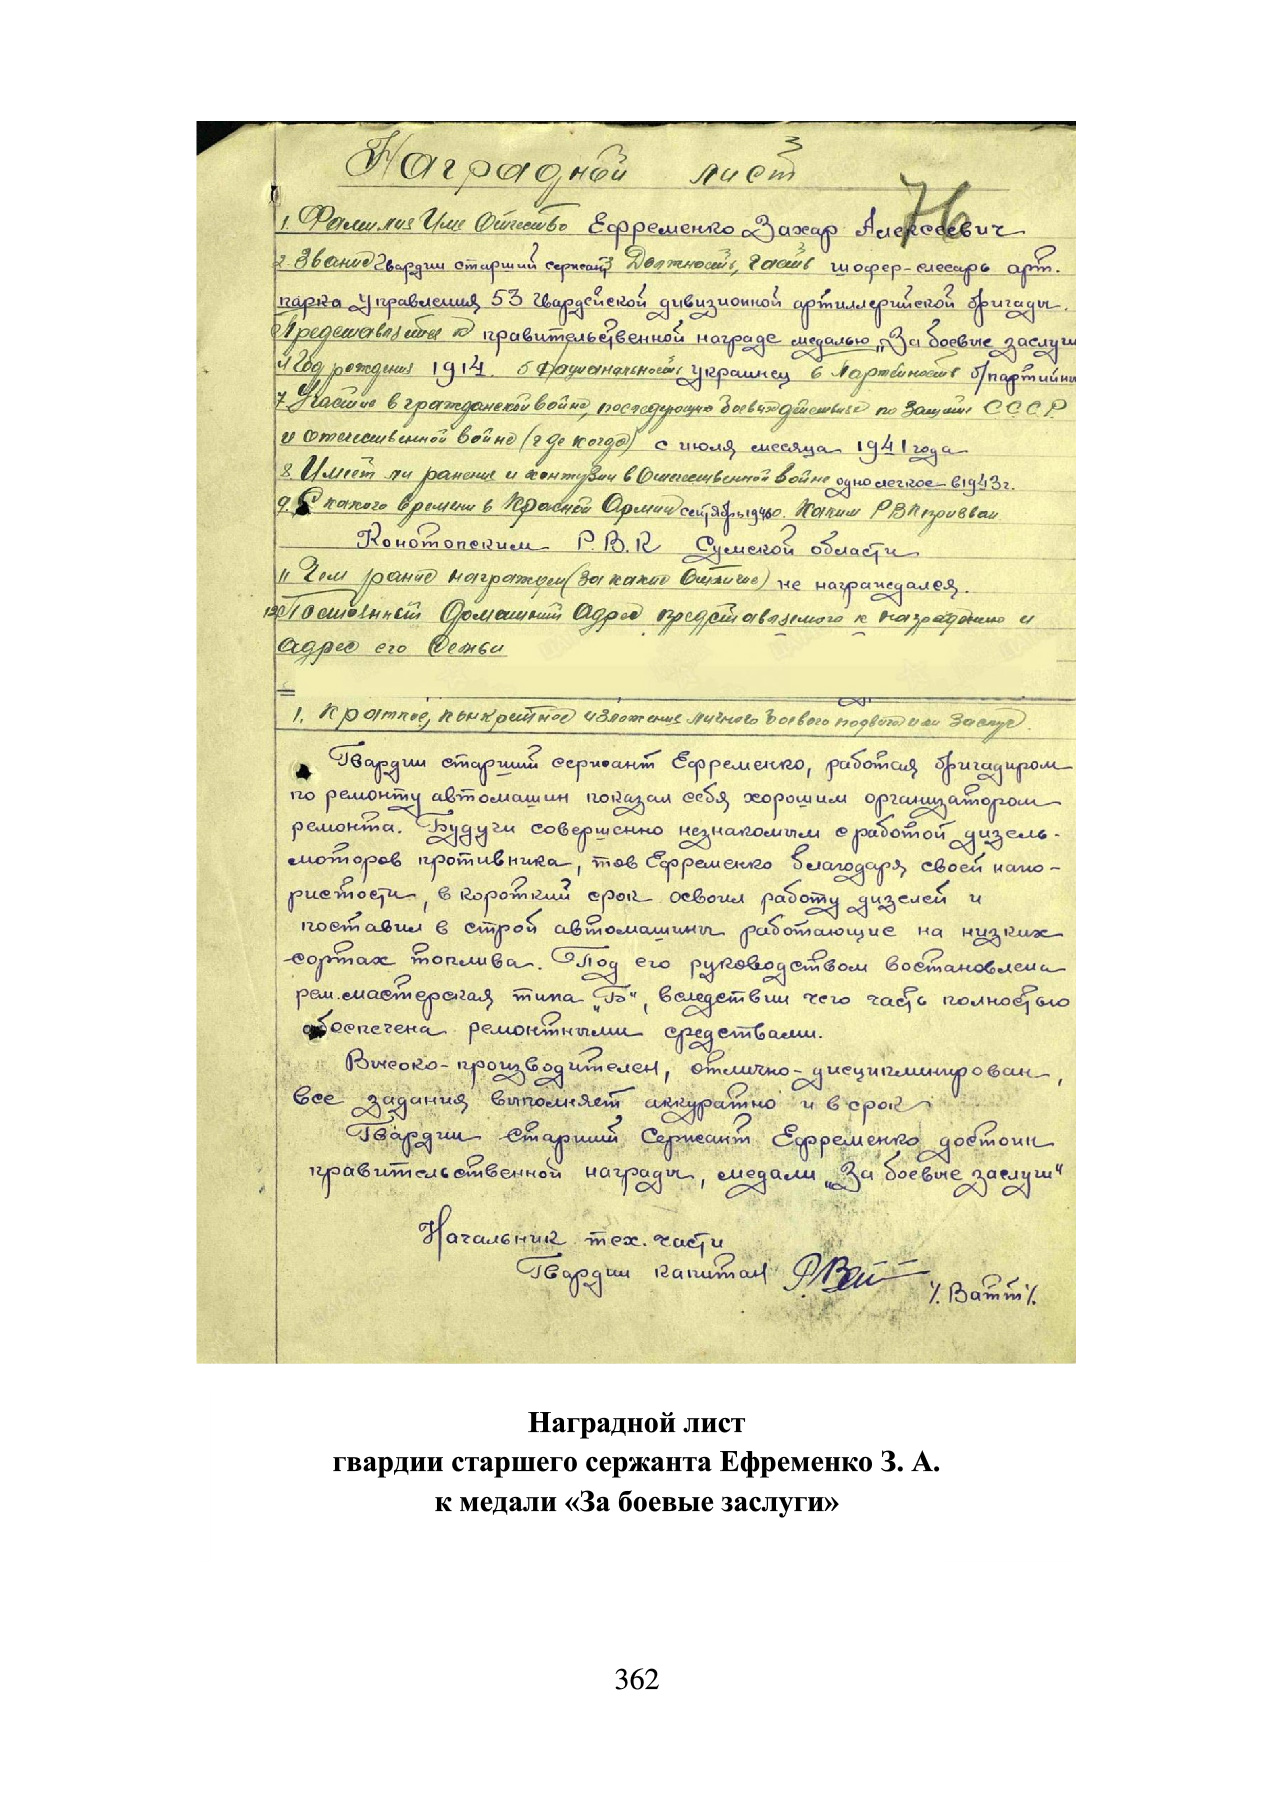 3
Наградной лист
76
1. Фамилия Имя Отчество Ефременко Захар Алексеевич
2. Звание Гвардии старший сержант 3 Должность, часть шофер-слесарь арт.
парка Управления 53 Гвардейской дивизионной артиллерийской бригады.
Представляется к правительственной награде медалью „За боевые заслуги
4 Год рождения 1914. 5 Национальность украинец 6 Партийность б/партийны
7 Участие в гражданской войне, последующих боевых действиях по защите СССР
и отечественной войне (где когда) с июля месяца 1941 года
8. Имеет ли ранения и контузии в Отечественной войне одно легкое в 1943 г.
9. С какого времени в Красной Армии сентябрь 1940. Каким РВК призван
Конотопским Р.В.К Сумской области
11 Чем ранее награжден (за какие отличие) не награждался.
12 Постоянный Домашний Адрес представляемого к награждению и
адрес его семьи
1. Краткое, конкретное изложение личного боевого подвига или заслуг.
Гвардии старший сержант Ефременко, работая бригадиром
по ремонту автомашин показал себя хорошим организатором
ремонта. Будучи совершенно незнакомым с работой дизель-
моторов противника, тов Ефременко благодаря своей напо-
ристости, в короткий срок освоил работу дизелей и
поставил в строй автомашины работающие на низких
сортах топлива. Под его руководством востановлена
рем.мастерская типа „Б“, вследствии чего часть полностью
обеспечена ремонтными средствами.
Высоко-производителен, отлично-дисциплинирован,
все задания выполняет аккуратно и в срок
Гвардии старший Сержант Ефременко достоин
правительственной награды, медали „За боевые заслуги“
Начальник тех. части
Гвардии капитан
/. Ватт /.
Наградной лист
гвардии старшего сержанта Ефременко З. А.
к медали «За боевые заслуги»
362